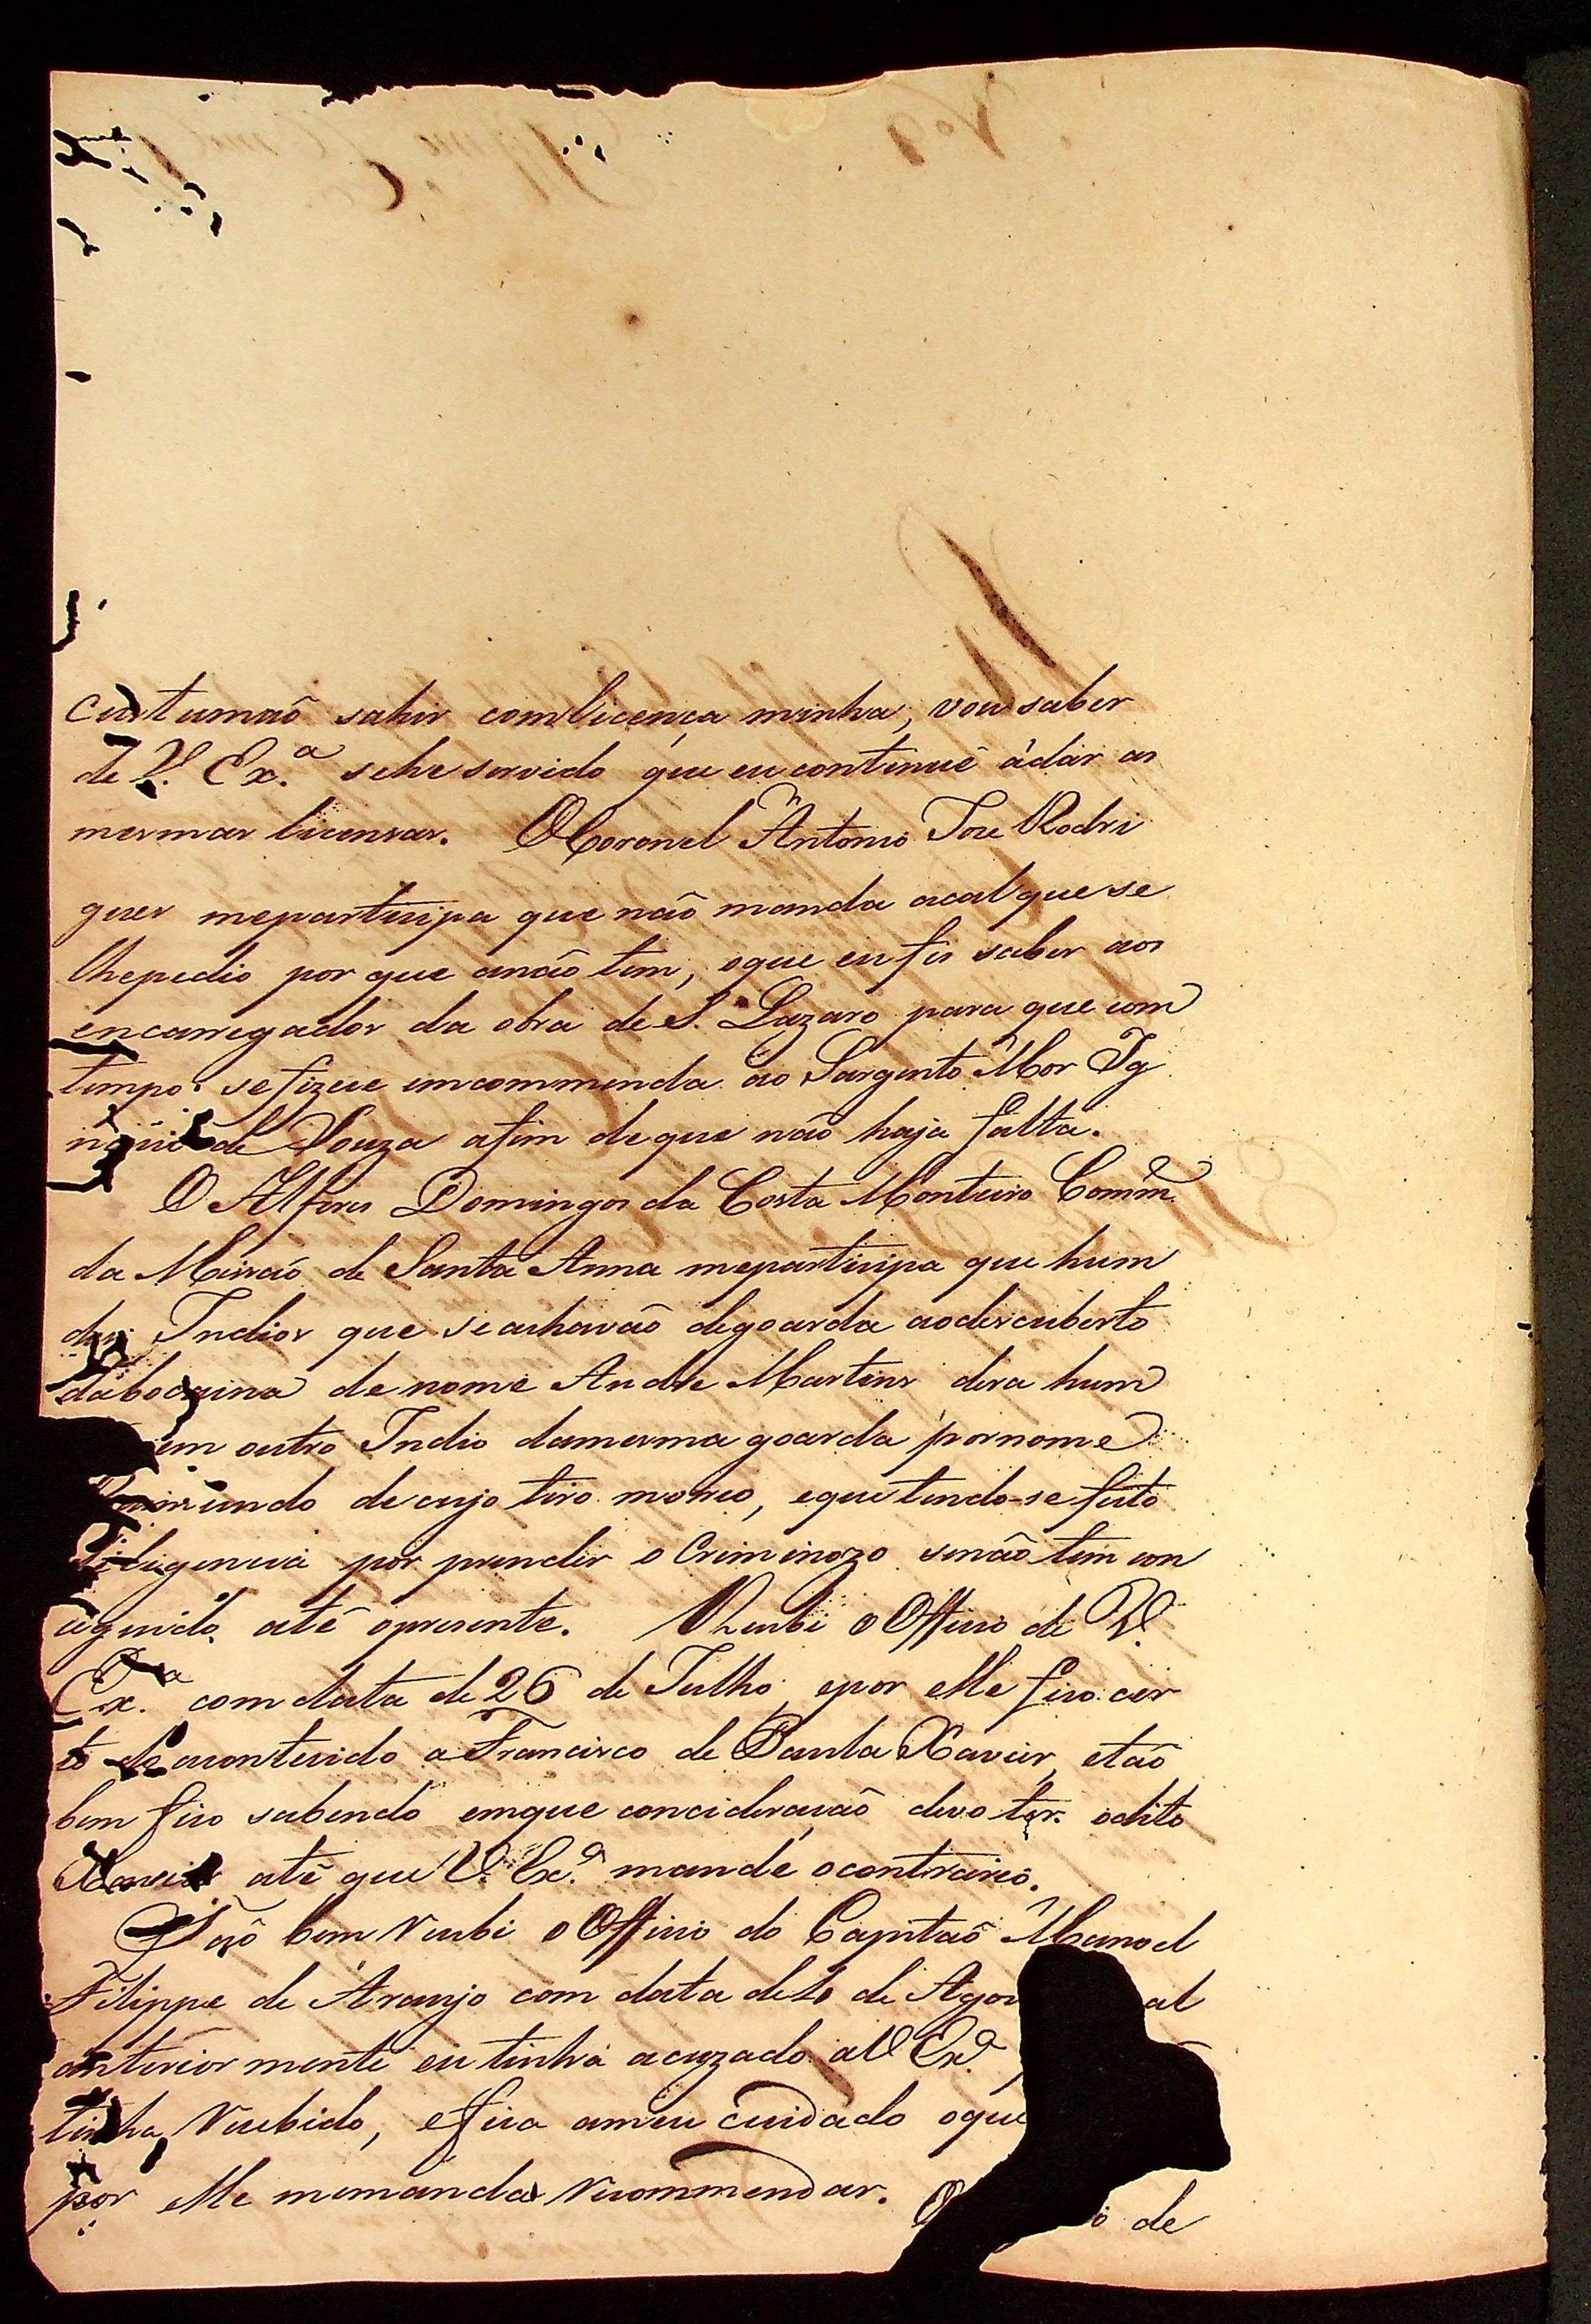 custumaõ sahir comlicença minha, vou saber
de V. Ex.ª sehe servido que eu continuê ádar as
mesmas licensas. O Coronel Antonio Joze Rodri
gues meparticipa que não manda acal que se
lhepedio por que anão tem, oque eu fis saber aos
encarregados da obra de S. Lazaro para que com
tempo sefizece emcommenda ao Sargento Mor Ig
de Souza afim deque não haja falta.
O Alferes Domingos da Costa Monteiro Comm.e
da Missaõ de Santa Anna meparticipa que hum
dos Indios que seachavão degoarda aodescuberto
daboquina de nome Andre Martins dera hum
em outro Indio damesma goarda pornome
mundo decujo tiro morreo, eque tendo-se feito
deligencia por prender o Criminozo senão tem con
ceguido até opresente. Recebi o Officio de V.
Ex.ª com data de 26 de Julho, epor elle fico cer
to do acontecido a Francisco de Paula Xavier, etaõ
bem fico sabendo emque concideração devo ter odito
Xavier até que V. Ex.ª mande ocontrario.
Taõ bem recebi o Officio do Capitaõ Manoel
Filippe de Araujo com data de 1o de Agos al
anteriormente eu tinha acuzado aV Ex.ª
tinha recebido, efica ameu cuidado oque
por elle memanda recommendar. O de